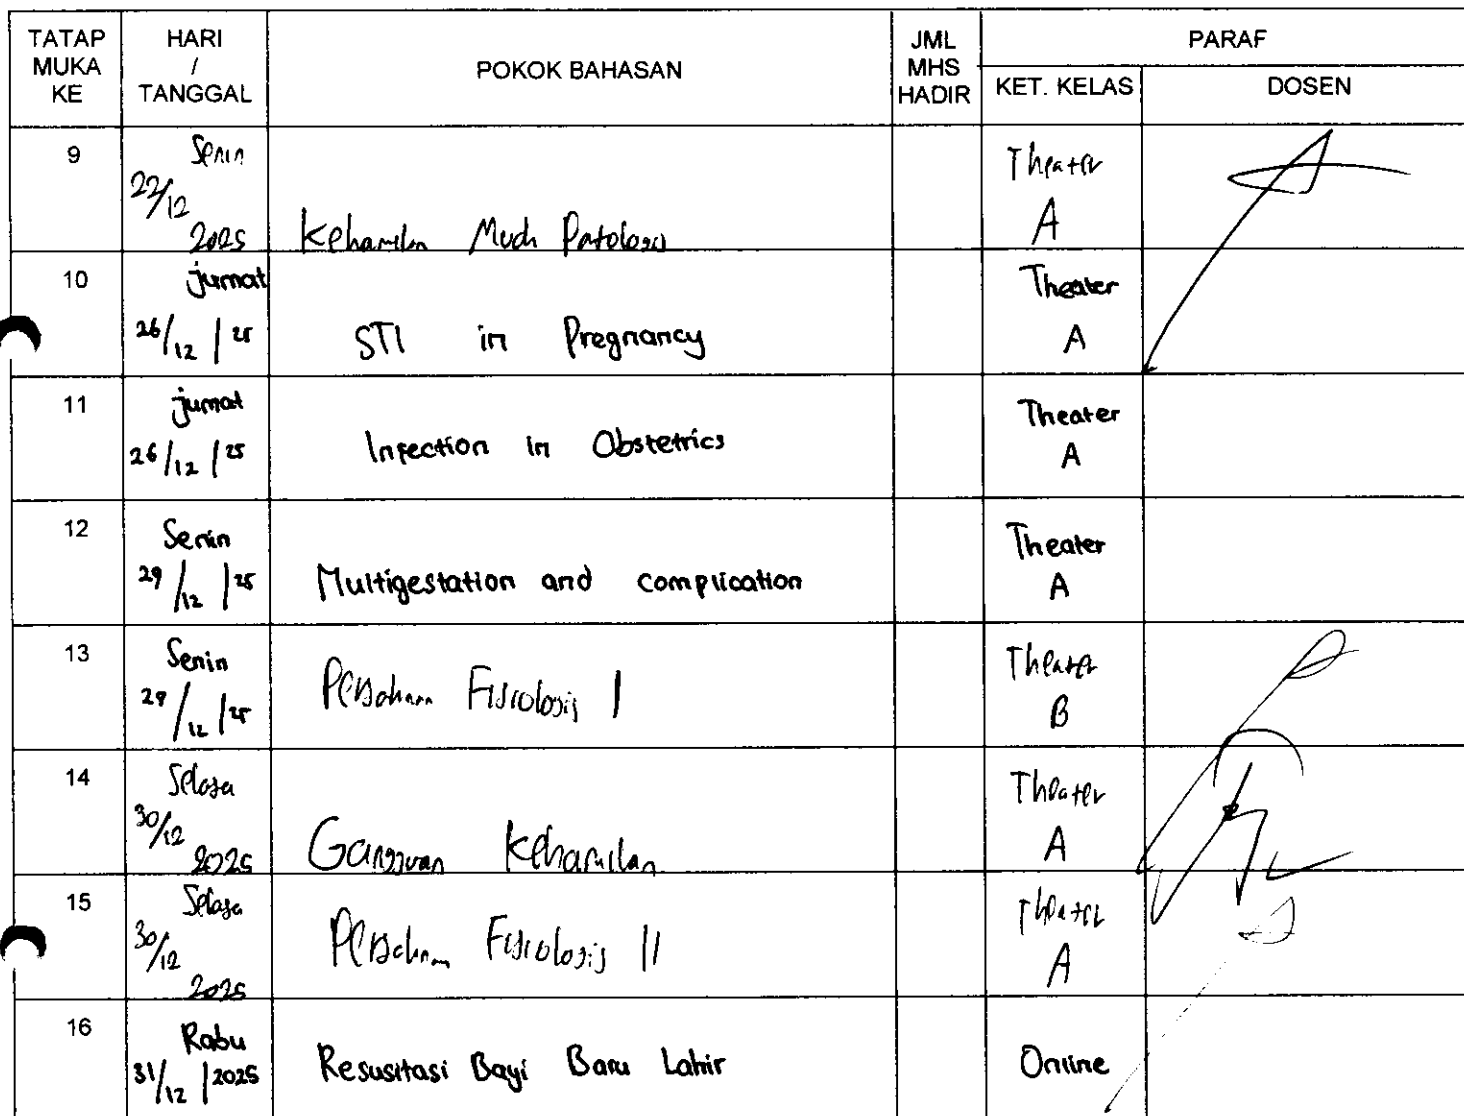 TATAP MUKA KE
HARI / TANGGAL
POKOK BAHASAN
JML MHS HADIR
PARAF
KET. KELAS
DOSEN
9
Senin
22/12
2025
Kehamilan Muda Patologis
Theater
A
10
jumat
26/12/25
STI in Pregnancy
Theater
A
11
jumat
26/12/25
Infection in Obstetrics
Theater
A
12
Senin
29/12/25
Multigestation and complication
Theater
A
13
Senin
29/12/25
Persalinan Fisiologis I
Theater
B
14
Selasa
30/12
2025
Gangguan Kehamilan
Theater
A
15
Selasa
30/12
2025
Persalinan Fisiologis II
Theater
A
16
Rabu
31/12/2025
Resusitasi Bayi Baru Lahir
Online